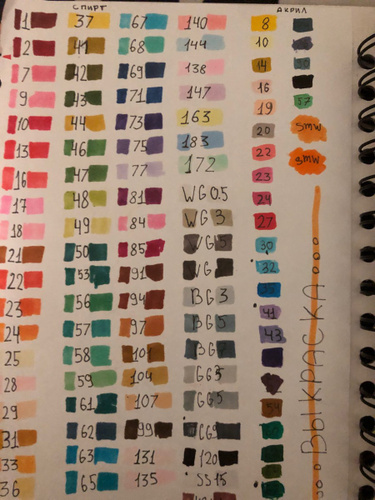 СПИРТ
АКРИЛ
1
2
7
9
10
13
16
17
18
21
22
23
24
25
28
29
31
33
36
37
41
42
43
44
46
47
48
49
50
53
56
57
58
59
61
62
63
65
67
68
69
71
73
75
77
81
84
85
91
94
97
101
104
107
99
131
135
140
144
138
147
163
183
172
WG 0.5
WG 3
WG 5
WG
BG 3
BG 5
BG
GG 3
GG 5
CG
120
8
10
14
16
19
20
22
23
24
27
30
32
35
41
43
57
5MW
3MW
ВЫКРАСКА